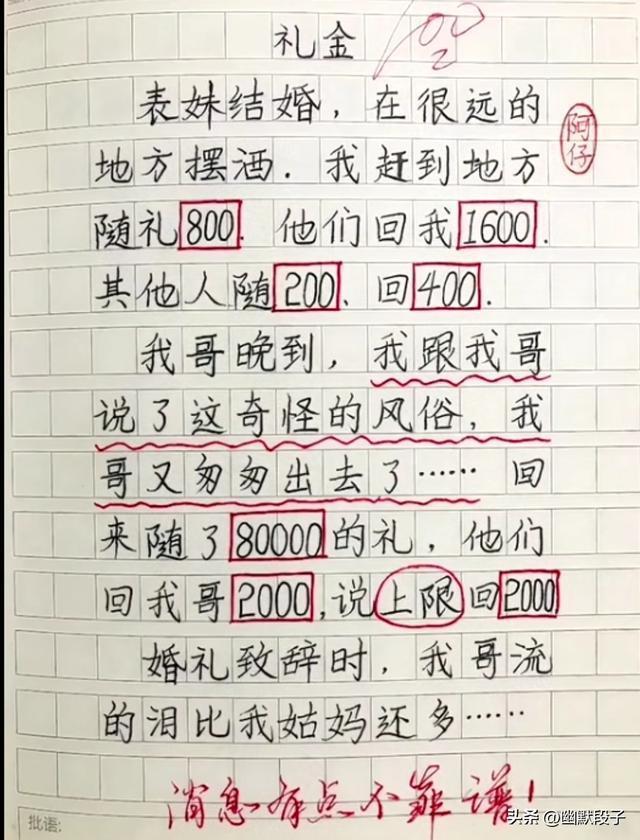 礼金
表妹结婚，在很远的
阿仔
地方摆酒．我赶到地方
随礼800．他们回我1600．
其他人随200、回400．
我哥晚到，我跟我哥
说了这奇怪的风俗，我
哥又匆匆出去了……回
来随了80000的礼，他们
回我哥2000,说上限回2000
婚礼致辞时，我哥流
的泪比我姑妈还多……
消息有点不靠谱！
批语:
头条 @幽默段子